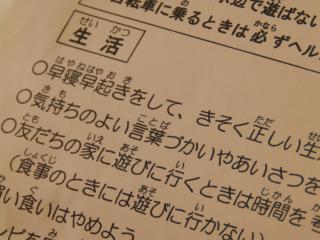 自転車に乗るときは必ずヘル
生活
○早寝早起きをして、きそく正しい生
○気持ちのよい言葉づかいやあいさつを
○友だちの家に遊びに行くときは時間を
(食事のときには遊びに行かない)
い食いはやめよう